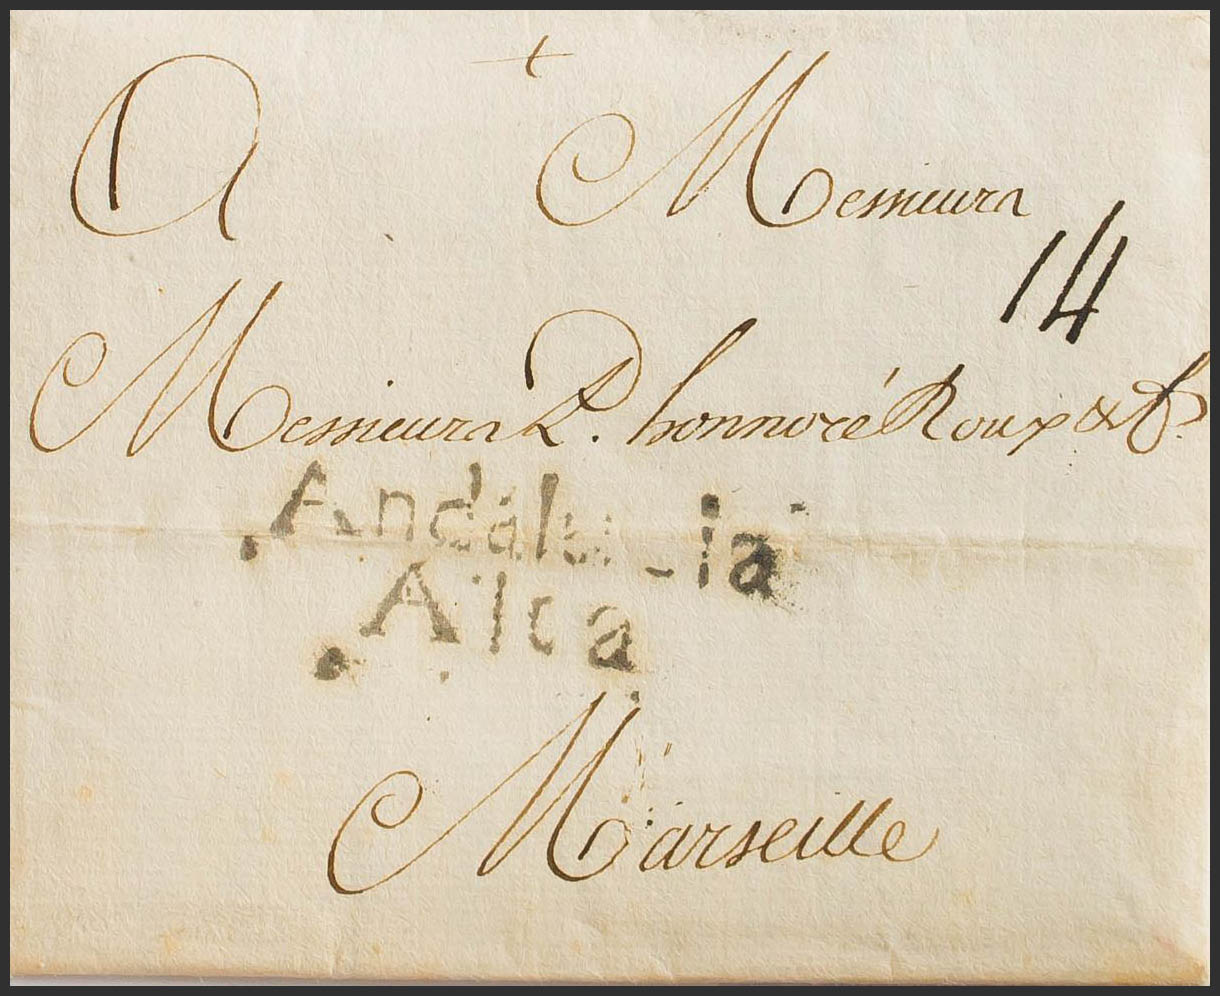 A Messieurs
14
Messieurs L. honnoré Roux & f.
Andalucia
Alta
Marseille